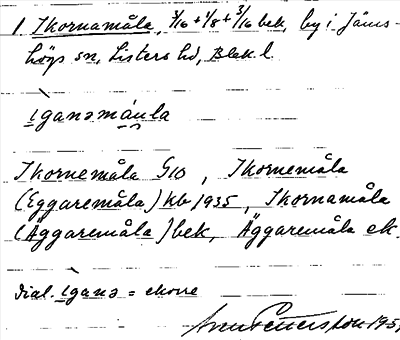 1. Ikornamåla, 3/16 + 1/8 + 3/16 bek, by i Jäms-
högs sn, Listers hd, Blek. l.
ìganəmáula
Ikornemåla G10, Ikornemåla
(Eggaremåla) kb 1935, Ikornamåla
(Äggaremåla) bek, Äggaremåla ek.
Dial. ìganə = ekorre